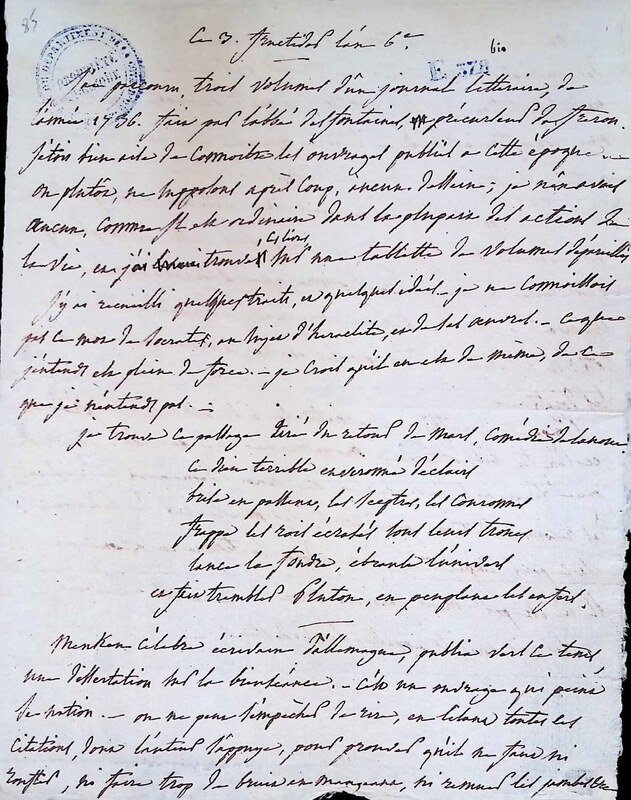 85
Ce 3. fructidor l'an 6e.
bio
E 378
parcouru trois volumes d'un journal litteraire, de
l'année 1736. fait par l'abbé desfontaines, précurseur de freron.
J'étois bien aise de connoitre les ouvrages publiés a cette époque. —
ou plutôt, ne supposons après coup, aucun dessein; je n'en avois
aucun, comme il est ordinaire dans la plupart des actions de
la vie, et j'ai trouvé ces livres sur une tablette de volumes dépareillés
J'y ai recueilli quelques traits, et quelques idées. — je ne connoissois
pas ce mot de Socrate, au sujet d'heraclite, et de ses œuvres. — ce que
j'entends est plein de force. — je crois qu'il en est de même, de ce
que je n'entends pas. —
je trouve ce passage tiré du retour de Mars, Comédie de lanoue.
ce dieu terrible environné d'éclairs
brise en passant, les sceptres, les couronnes
frappe les rois écrasés sous leurs trones
lance la foudre, ébranle l'univers
et fait trembler Pluton, en peuplant les enfers.
Menken célebre écrivain d'allemagne, publia vers ce tems,
une dissertation sur la bienséance. — c'est un ouvrage qui peint
la nation. — on ne peut s'empêcher de rire, en lisant toutes les
citations, dont l'auteur s'appuye, pour prouver qu'il ne faut ni
ronfler, ni faire trop de bruit en mangeant, ni remuer les jambes